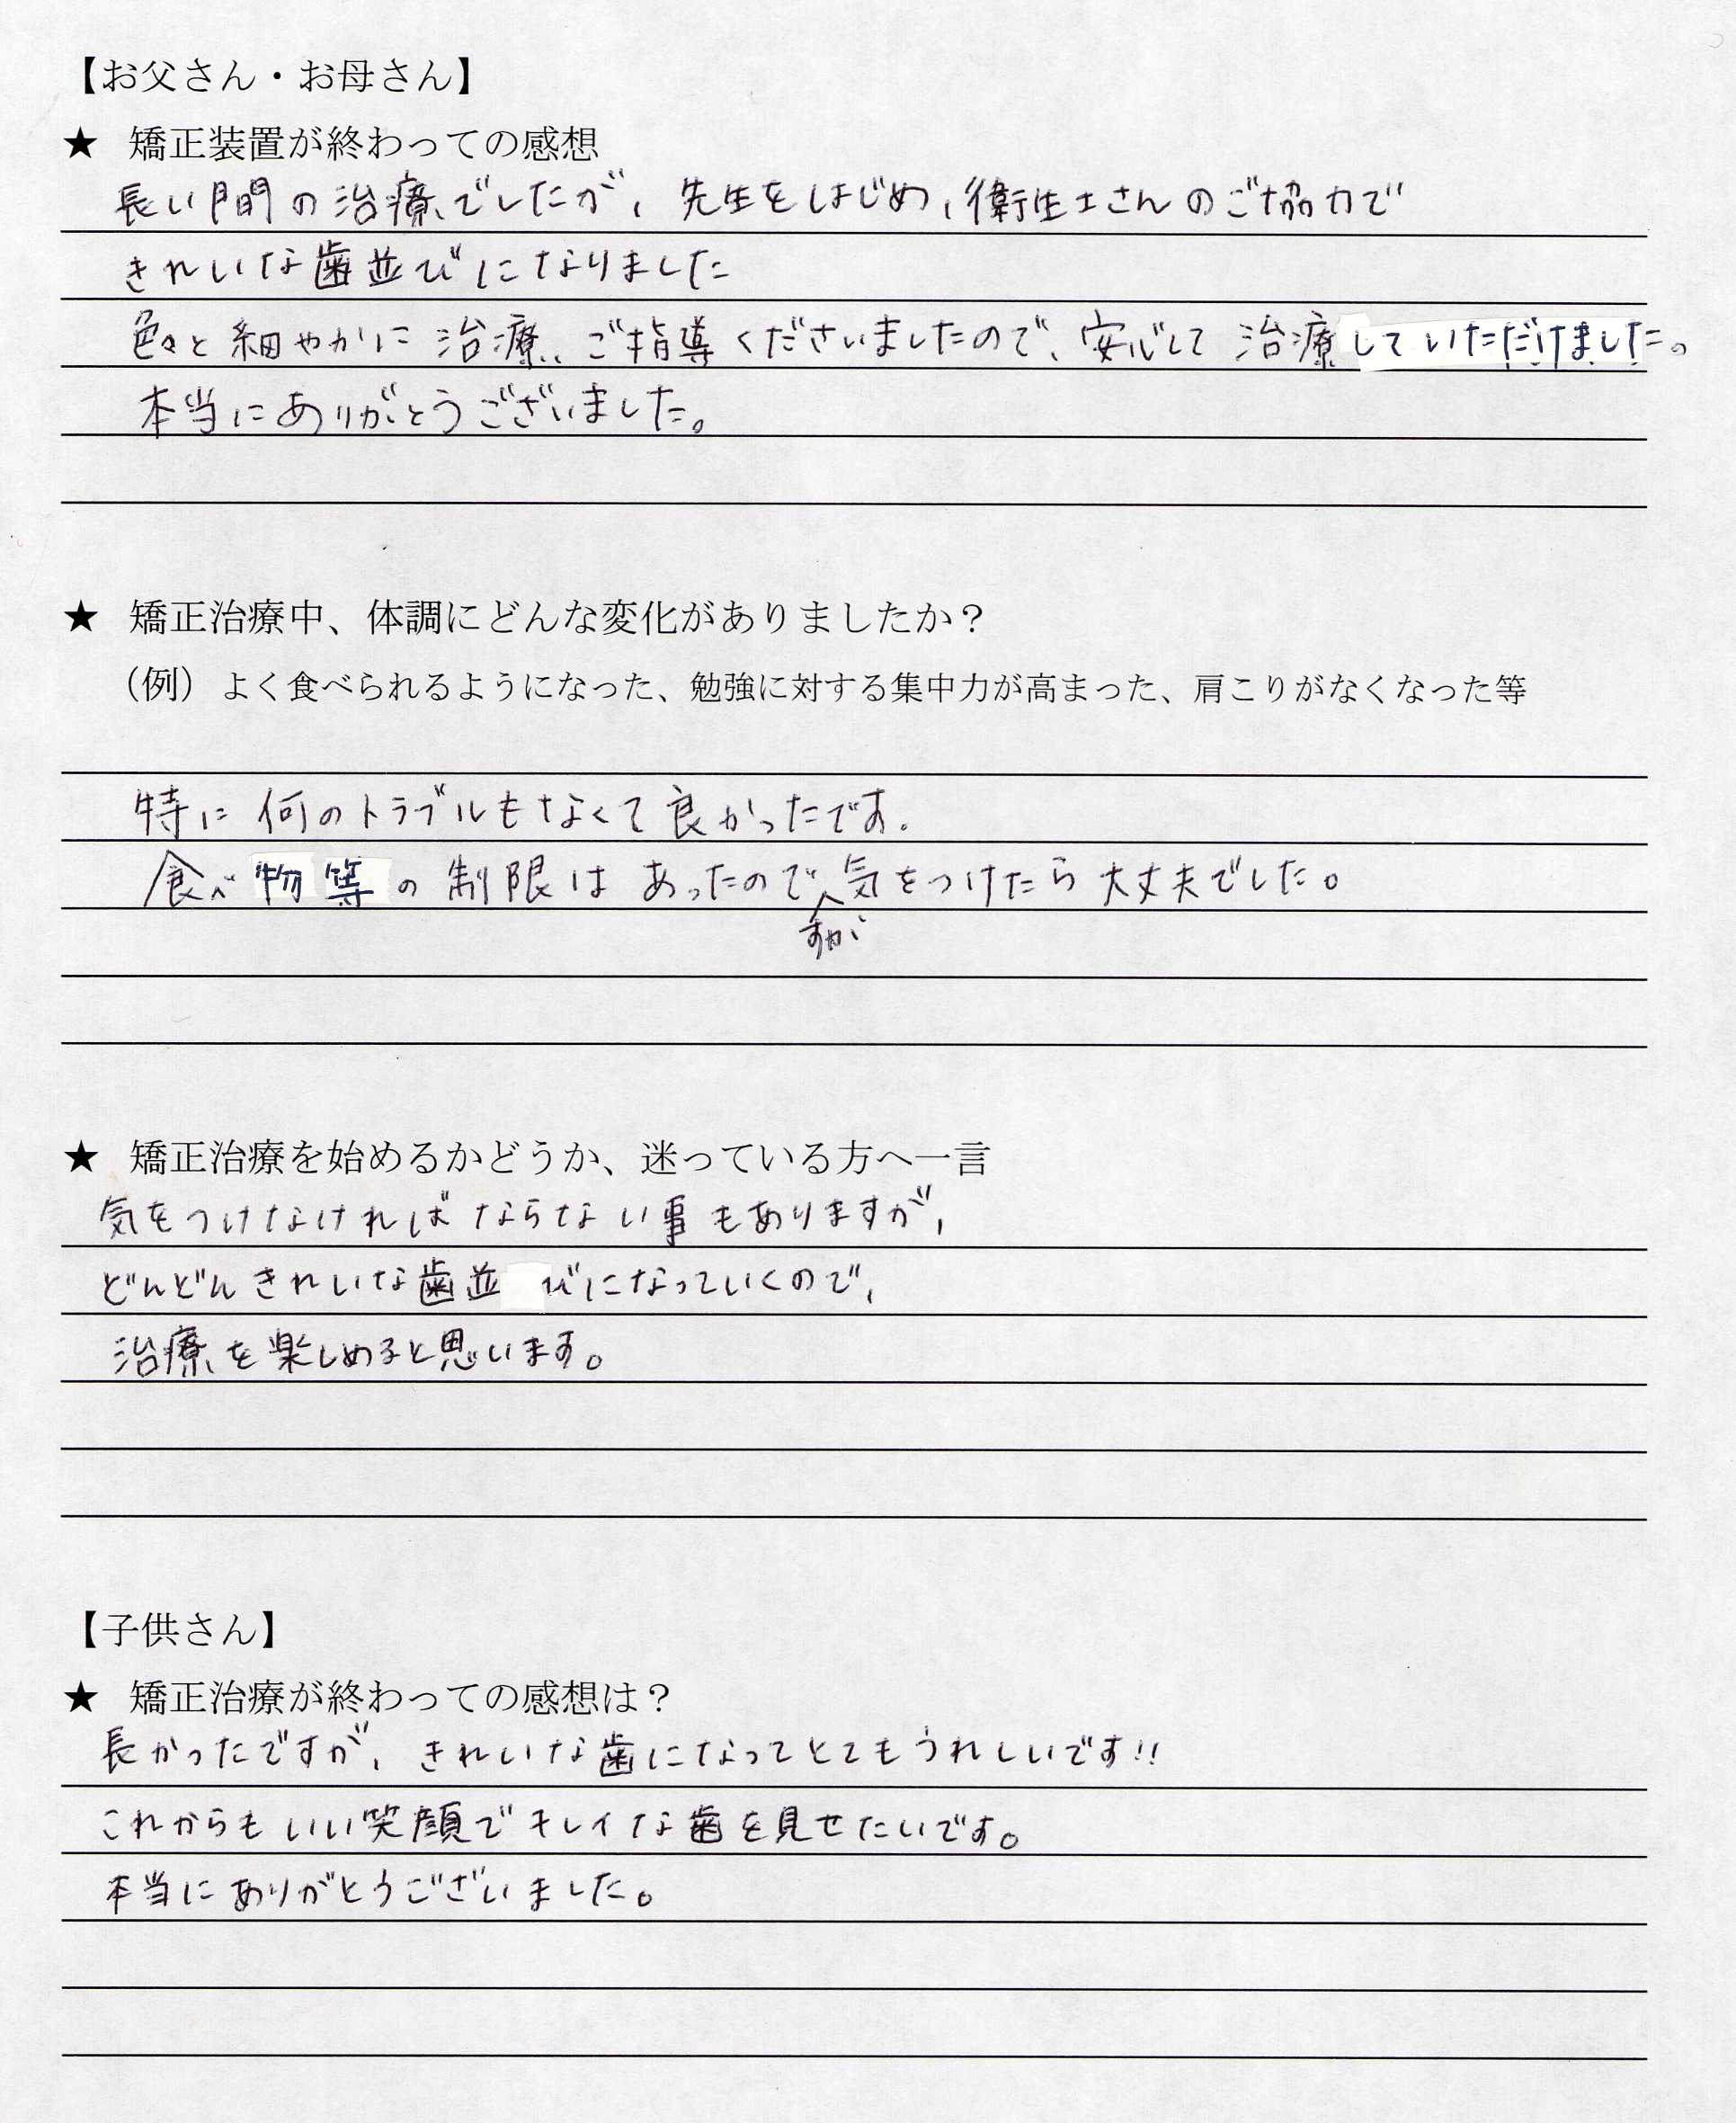 【お父さん・お母さん】
★ 矯正装置が終わっての感想
長い間の治療でしたが、先生をはじめ、衛生士さんのご協力で
きれいな歯並びになりました
色々と細やかに治療、ご指導くださいましたので、安心して治療していただけました。
本当にありがとうございました。
★ 矯正治療中、体調にどんな変化がありましたか？
（例）よく食べられるようになった、勉強に対する集中力が高まった、肩こりがなくなった等
特に何のトラブルもなくて良かったです。
食べ物等の制限はあったので気をつけたら大丈夫でした。
すが
★ 矯正治療を始めるかどうか、迷っている方へ一言
気をつけなければならない事もありますが、
どんどんきれいな歯並びになっていくので、
治療を楽しめると思います。
【子供さん】
★ 矯正治療が終わっての感想は？
長かったですが、きれいな歯になってとてもうれしいです!!
これからもいい笑顔でキレイな歯を見せたいです。
本当にありがとうございました。